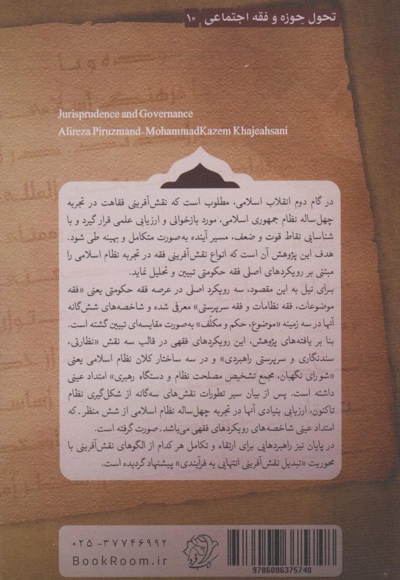 تحول حوزه و فقه اجتماعی ۱۰
Jurisprudence and Governance
Alireza Piruzmand-MohammadKazem Khajeahsani
در گام دوم انقلاب اسلامی، مطلوب است که نقش‌آفرینی فقاهت در تجربه
چهل‌ساله نظام جمهوری اسلامی، مورد بازخوانی و ارزیابی علمی قرار گیرد و با
شناسایی نقاط قوت و ضعف، مسیر آینده به‌صورت متکامل و بهینه طی شود.
هدف این پژوهش آن است که انواع نقش‌آفرینی فقه در تجربه نظام اسلامی را
مبتنی بر رویکردهای اصلی فقه حکومتی تبیین و تحلیل نماید.
برای نیل به این مقصود، سه رویکرد اصلی در عرصه فقه حکومتی یعنی «فقه
موضوعات، فقه نظامات و فقه سرپرستی» معرفی شده و شاخصه‌های شش‌گانه
آنها در سه زمینه «موضوع، حکم و مکلّف» به‌صورت مقایسه‌ای تبیین گشته است.
بنا بر یافته‌های پژوهش، این رویکردهای فقهی در قالب سه نقش «نظارتی،
سندنگاری و سرپرستی راهبردی» و در سه ساختار کلان نظام اسلامی یعنی
«شورای نگهبان، مجمع تشخیص مصلحت نظام و دستگاه رهبری» امتداد عینی
داشته است. پس از بیان سیر تطورات نقش‌های سه‌گانه از شکل‌گیری نظام
تاکنون، ارزیابی بنیادی آنها در تجربه چهل‌ساله نظام اسلامی از شش منظر ـ که
امتداد عینی شاخصه‌های رویکردهای فقهی می‌باشد ـ صورت گرفته است.
در پایان نیز راهبردهایی برای ارتقاء و تکامل هر کدام از الگوهای نقش‌آفرینی با
محوریت «تبدیل نقش‌آفرینی انتهایی به فرآیندی» پیشنهاد گردیده است.
۰۲۵-۳۷۷۴۶۹۹۲
BookRoom.ir
9786006375748